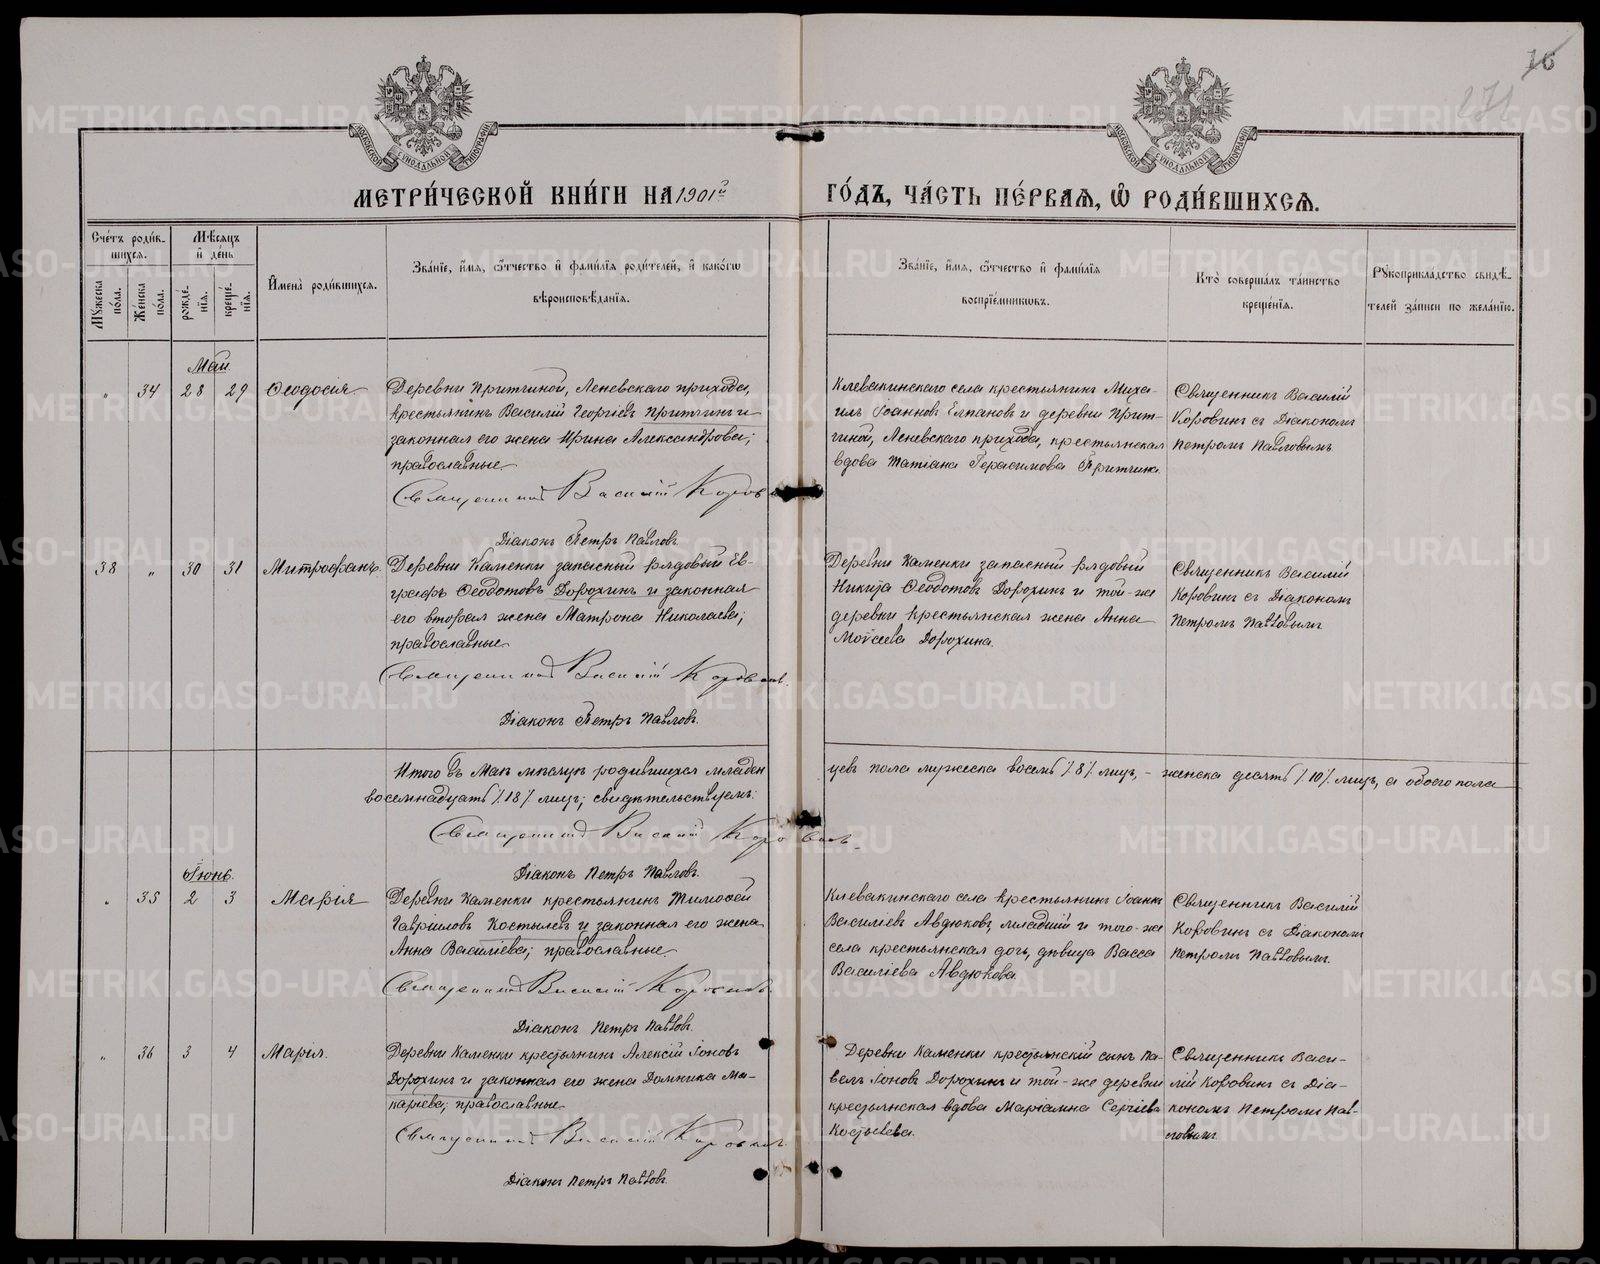 16
271
МЕТРИ́ЧЕСКОЙ КНИ́ГИ НА 1901й ГО́ДЪ, ЧА́СТЬ ПЕ́РВАЯ, Ѡ РОДИ́ВШИХСЯ.
Сче́тъ роди́в-
шихся.
Му́жеска по́ла.
Же́нска по́ла.
Мѣ́сяцъ и҆ де́нь
рожде́нїя.
креще́нїя.
И҆мена̀ роди́вшихся.
Зва́нїе, и҆́мя, ѻ҆́тчество и҆ фами́лїя роди́телей, и҆ како́гѡ
вѣроисповѣ́данїя.
Зва́нїе, и҆́мя, ѻ҆́тчество и҆ фами́лїя
воспрїе́мникѡвъ.
Кто̀ соверша́лъ та́инство
креще́нїя.
Рꙋкоприкла́дство свидѣ́-
телей за́писи по жела́нїю.
Май
" 34 28 29 Ѳеодосія
Деревни Притчиной, Леневскаго прихода,
крестьянинъ Василій Георгіевъ Притчинъ и
законная его жена Ирина Александрова;
православные
Священникъ Василій Коровинъ
Діаконъ Петръ Павловъ.
Клевакинскаго села крестьянинъ Миха-
илъ Іоанновъ Елпановъ и деревни Прит-
чиной, Леневскаго прихода, крестьянская
вдова Татіана Герасимова Притчина.
Священникъ Василій
Коровинъ съ Діакономъ
Петромъ Павловымъ
38 " 30 31 Митрофанъ.
Деревни Каменки запасный рядовый Ев-
графъ Ѳеодотовъ Дорохинъ и законная
его вторая жена Матрона Николаева;
православные
Священникъ Василій Коровинъ.
Діаконъ Петръ Павловъ.
Деревни Каменки запасный рядовый
Никита Ѳеодотовъ Дорохинъ и той-же
деревни крестьянская жена Анна
Моѵсеева Дорохина.
Священникъ Василій
Коровинъ съ Діакономъ
Петромъ Павловымъ
Итого въ Маѣ мѣсяцѣ родившихся младен
цевъ пола мужеска восемь /8/ лицъ, - женска десять /10/ лицъ, а обоего пола
восемнадцать /18/ лицъ; свидѣтельствуемъ:
Священникъ Василій Коровинъ.
Діаконъ Петръ Павловъ.
Іюнь.
" 35 2 3 Марія
Деревни Каменки крестьянинъ Тимоѳей
Гавріиловъ Костылевъ и законная его жена
Анна Василіева; православные
Священникъ Василій Коровинъ
Діаконъ Петръ Павловъ.
Клевакинскаго села крестьянинъ Іоаннъ
Василіевъ Авдюковъ, младшій и того-же
села крестьянская дочь, дѣвица Васса
Василіева Авдюкова.
Священникъ Василій
Коровинъ съ Діакономъ
Петромъ Павловымъ.
" 36 3 4 Марія.
Деревни Каменки крестьянинъ Алексій Іоновъ
Дорохинъ и законная его жена Домника Ма-
каріева; православные
Священникъ Василій Коровинъ
Діаконъ Петръ Павловъ.
Деревни Каменки крестьянскій сынъ Па-
велъ Іоновъ Дорохинъ и той-же деревни
крестьянская вдова Маріамна Сергіева
Костылева.
Священникъ Васи-
лій Коровинъ съ Діа-
кономъ Петромъ Пав-
ловымъ.
METRIKI.GASO-URAL.RU